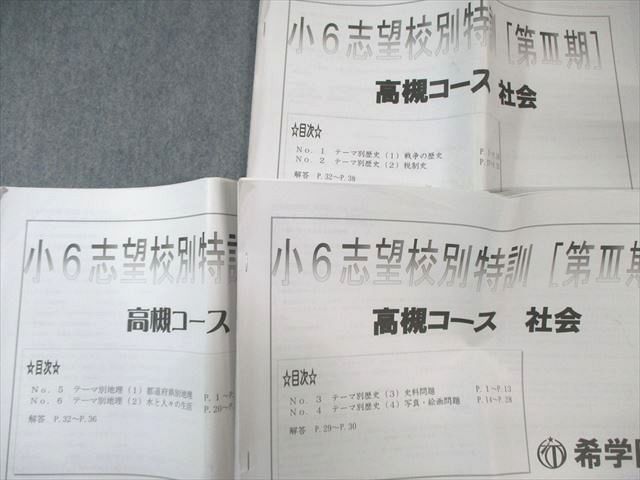 小６志望校別特訓［第Ⅲ期］
高槻コース 社会
☆目次☆
Ｎｏ．１ テーマ別歴史（１）戦争の歴史
Ｎｏ．２ テーマ別歴史（２）税制史
解答 Ｐ．３２～Ｐ．３８
小６志望校別特
高槻コース
☆目次☆
Ｎｏ．５ テーマ別地理（１）都道府県別地理 Ｐ．１～Ｐ
Ｎｏ．６ テーマ別地理（２）水と人々の生活 Ｐ．２０～
解答 Ｐ．３２～Ｐ．３６
小６志望校別特訓［第Ⅲ期
高槻コース 社会
☆目次☆
Ｎｏ．３ テーマ別歴史（３）史料問題 Ｐ．１～Ｐ．１３
Ｎｏ．４ テーマ別歴史（４）写真・絵画問題 Ｐ．１４～Ｐ．２８
解答 Ｐ．２９～Ｐ．３０
希学